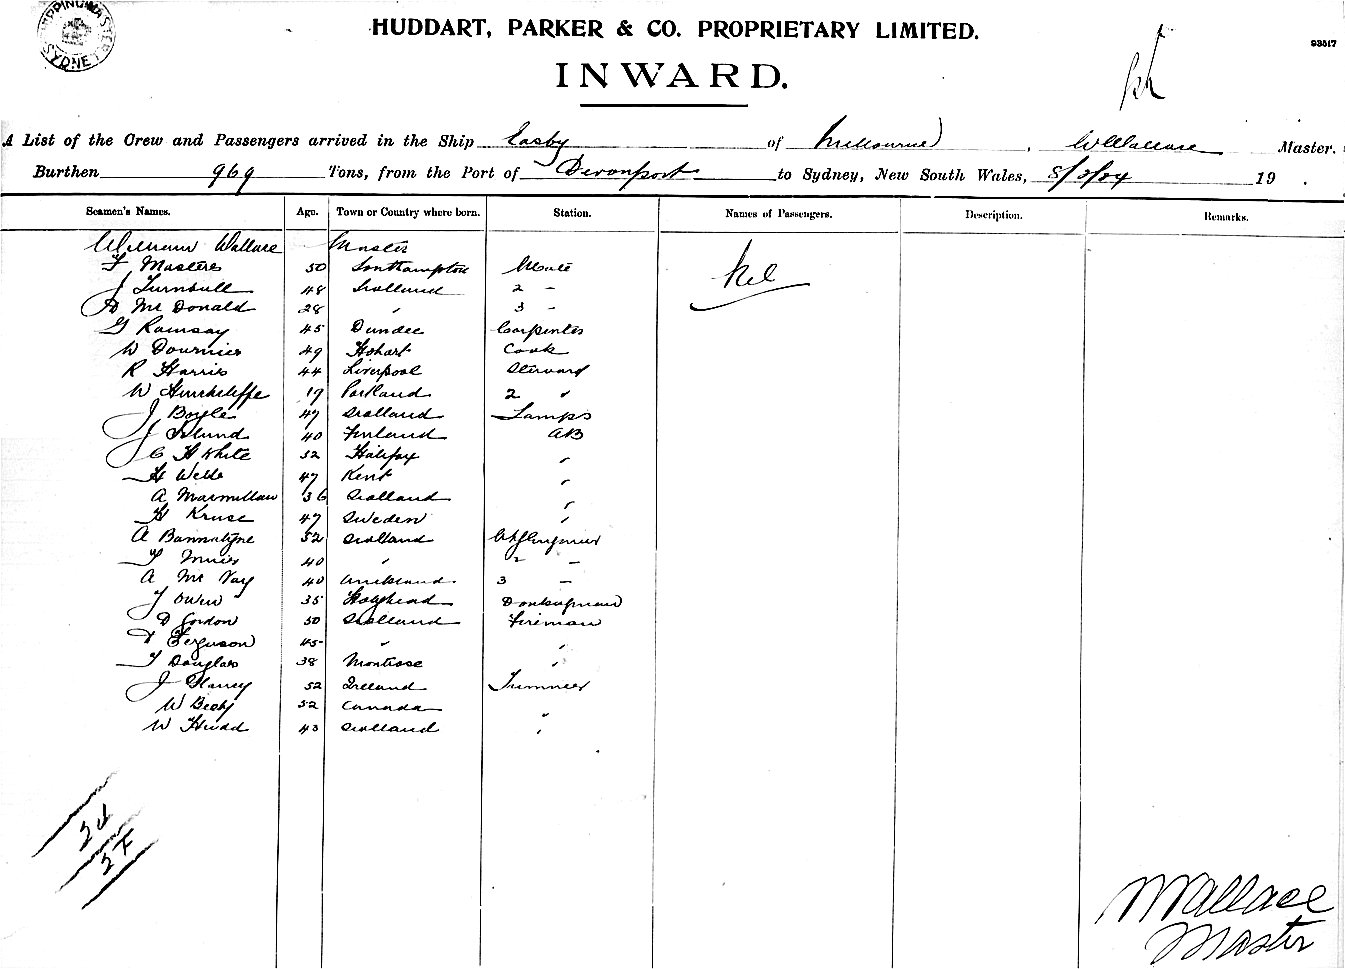 SHIPPING MASTER SYDNEY
HUDDART, PARKER & CO. PROPRIETARY LIMITED.
93517
INWARD.
A List of the Crew and Passengers arrived in the Ship Easby of Melbourne, W Wallace Master.
Burthen 969 Tons, from the Port of Devonport to Sydney, New South Wales, 8/3/04 19 .
Seamen's Names. Age. Town or Country where born. Station. Names of Passengers. Description. Remarks.
William Wallace Master
F Masters 50 Southampton Mate
J Turnbull 48 Scotland 2 -
D Mc Donald 28 " 3 -
G Ramsay 45 Dundee Carpenter
W 49 Hobart Cook
R Harris 44 Liverpool Steward
W Hinchcliffe 19 Portland 2 "
J Boyle 47 Scotland Lamps
J 40 Finland AB
C H White 52 Halifax "
H Webb 47 Kent "
A Macmillan 36 Scotland "
H Kruse 47 Sweden "
A Bannatyne 52 Scotland Ch Engineer
T Muir 40 " 2 -
A Mc Vay 40 Auckland 3 -
J Owen 35 Holyhead Donkeyman
D Gordon 50 Scotland Fireman
D Ferguson 45 " "
T Douglas 38 Montrose "
J 52 Ireland Trimmer
W 32 Canada "
W 43 Scotland "
Nil
24
24
W Wallace
Master